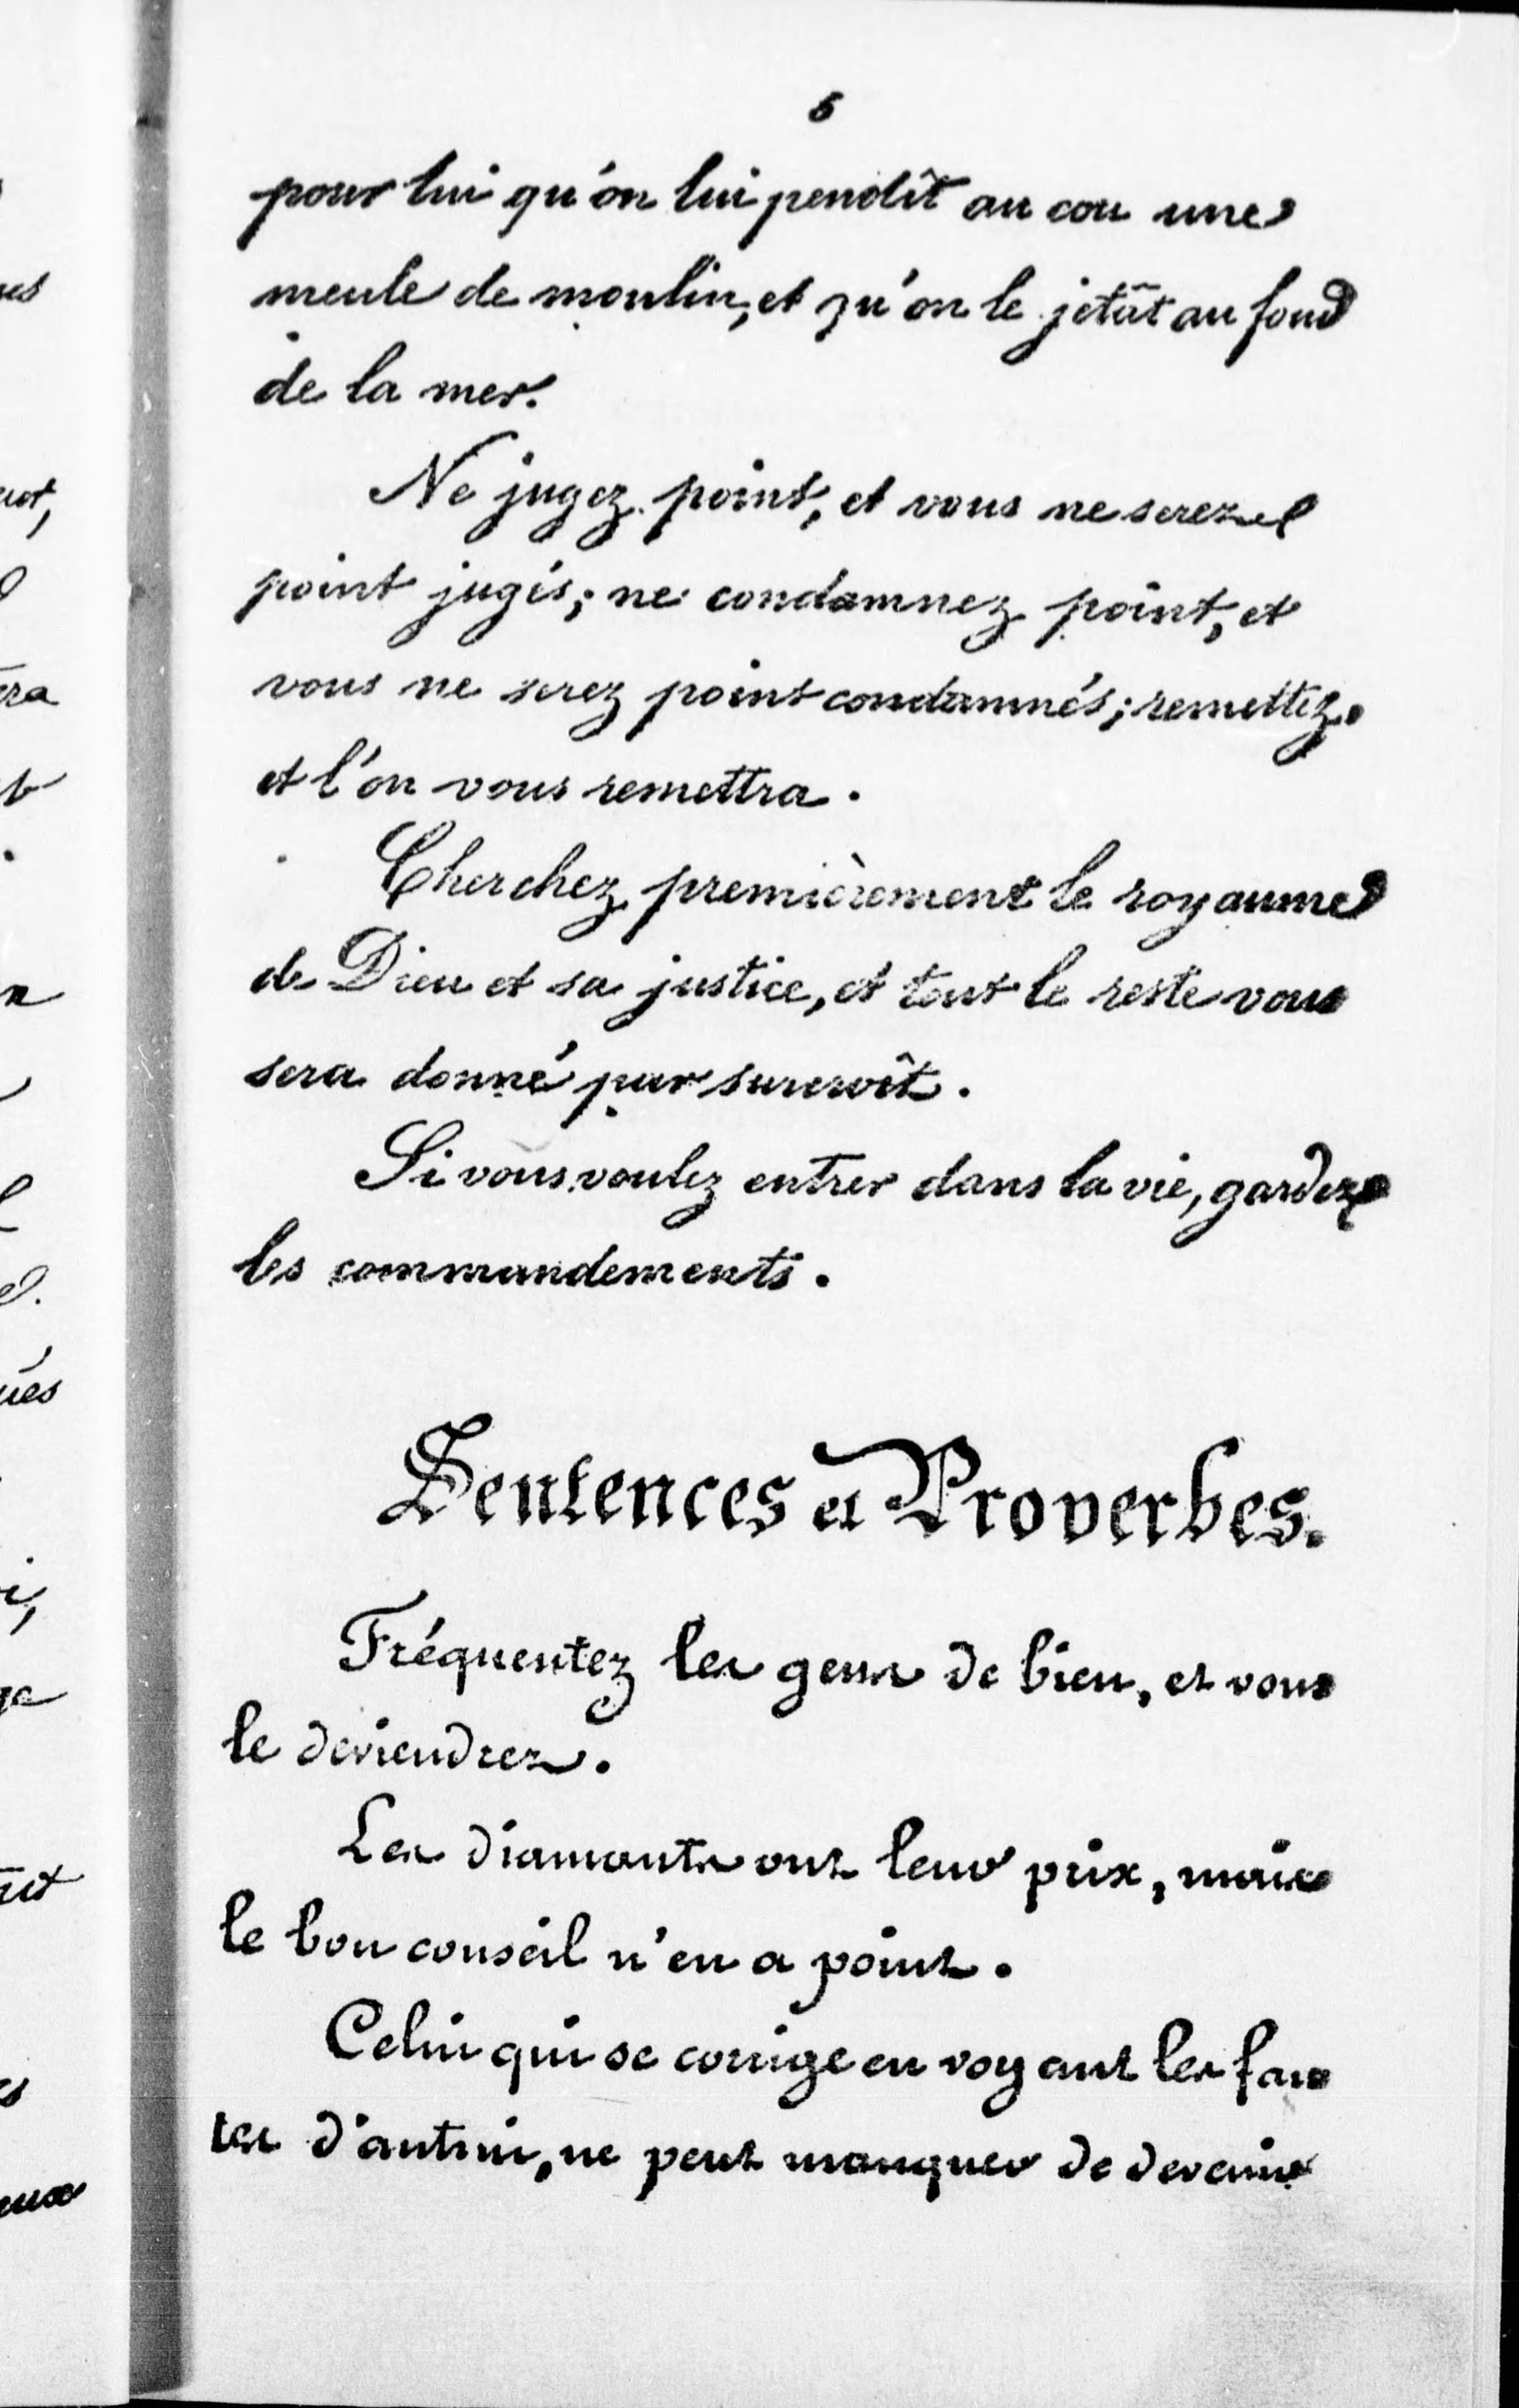 5
pour lui qu'on lui pendît au cou une
meule de moulin, et qu'on le jetât au fond
de la mer.
Ne jugez point, et vous ne serez
point jugés; ne condamnez point, et
vous ne serez point condamnés; remettez
et l'on vous remettra.
Cherchez premièrement le royaume
de Dieu et sa justice, et tout le reste vous
sera donné par surcroît.
Si vous voulez entrer dans la vie, gardez
les commandements.
Sentences et Proverbes.
Fréquentez les gens de bien, et vous
le deviendrez.
Les diamants ont leur prix, mais
le bon conseil n'en a point.
Celui qui se corrige en voyant les fau
tes d'autrui, ne peut manquer de devenir